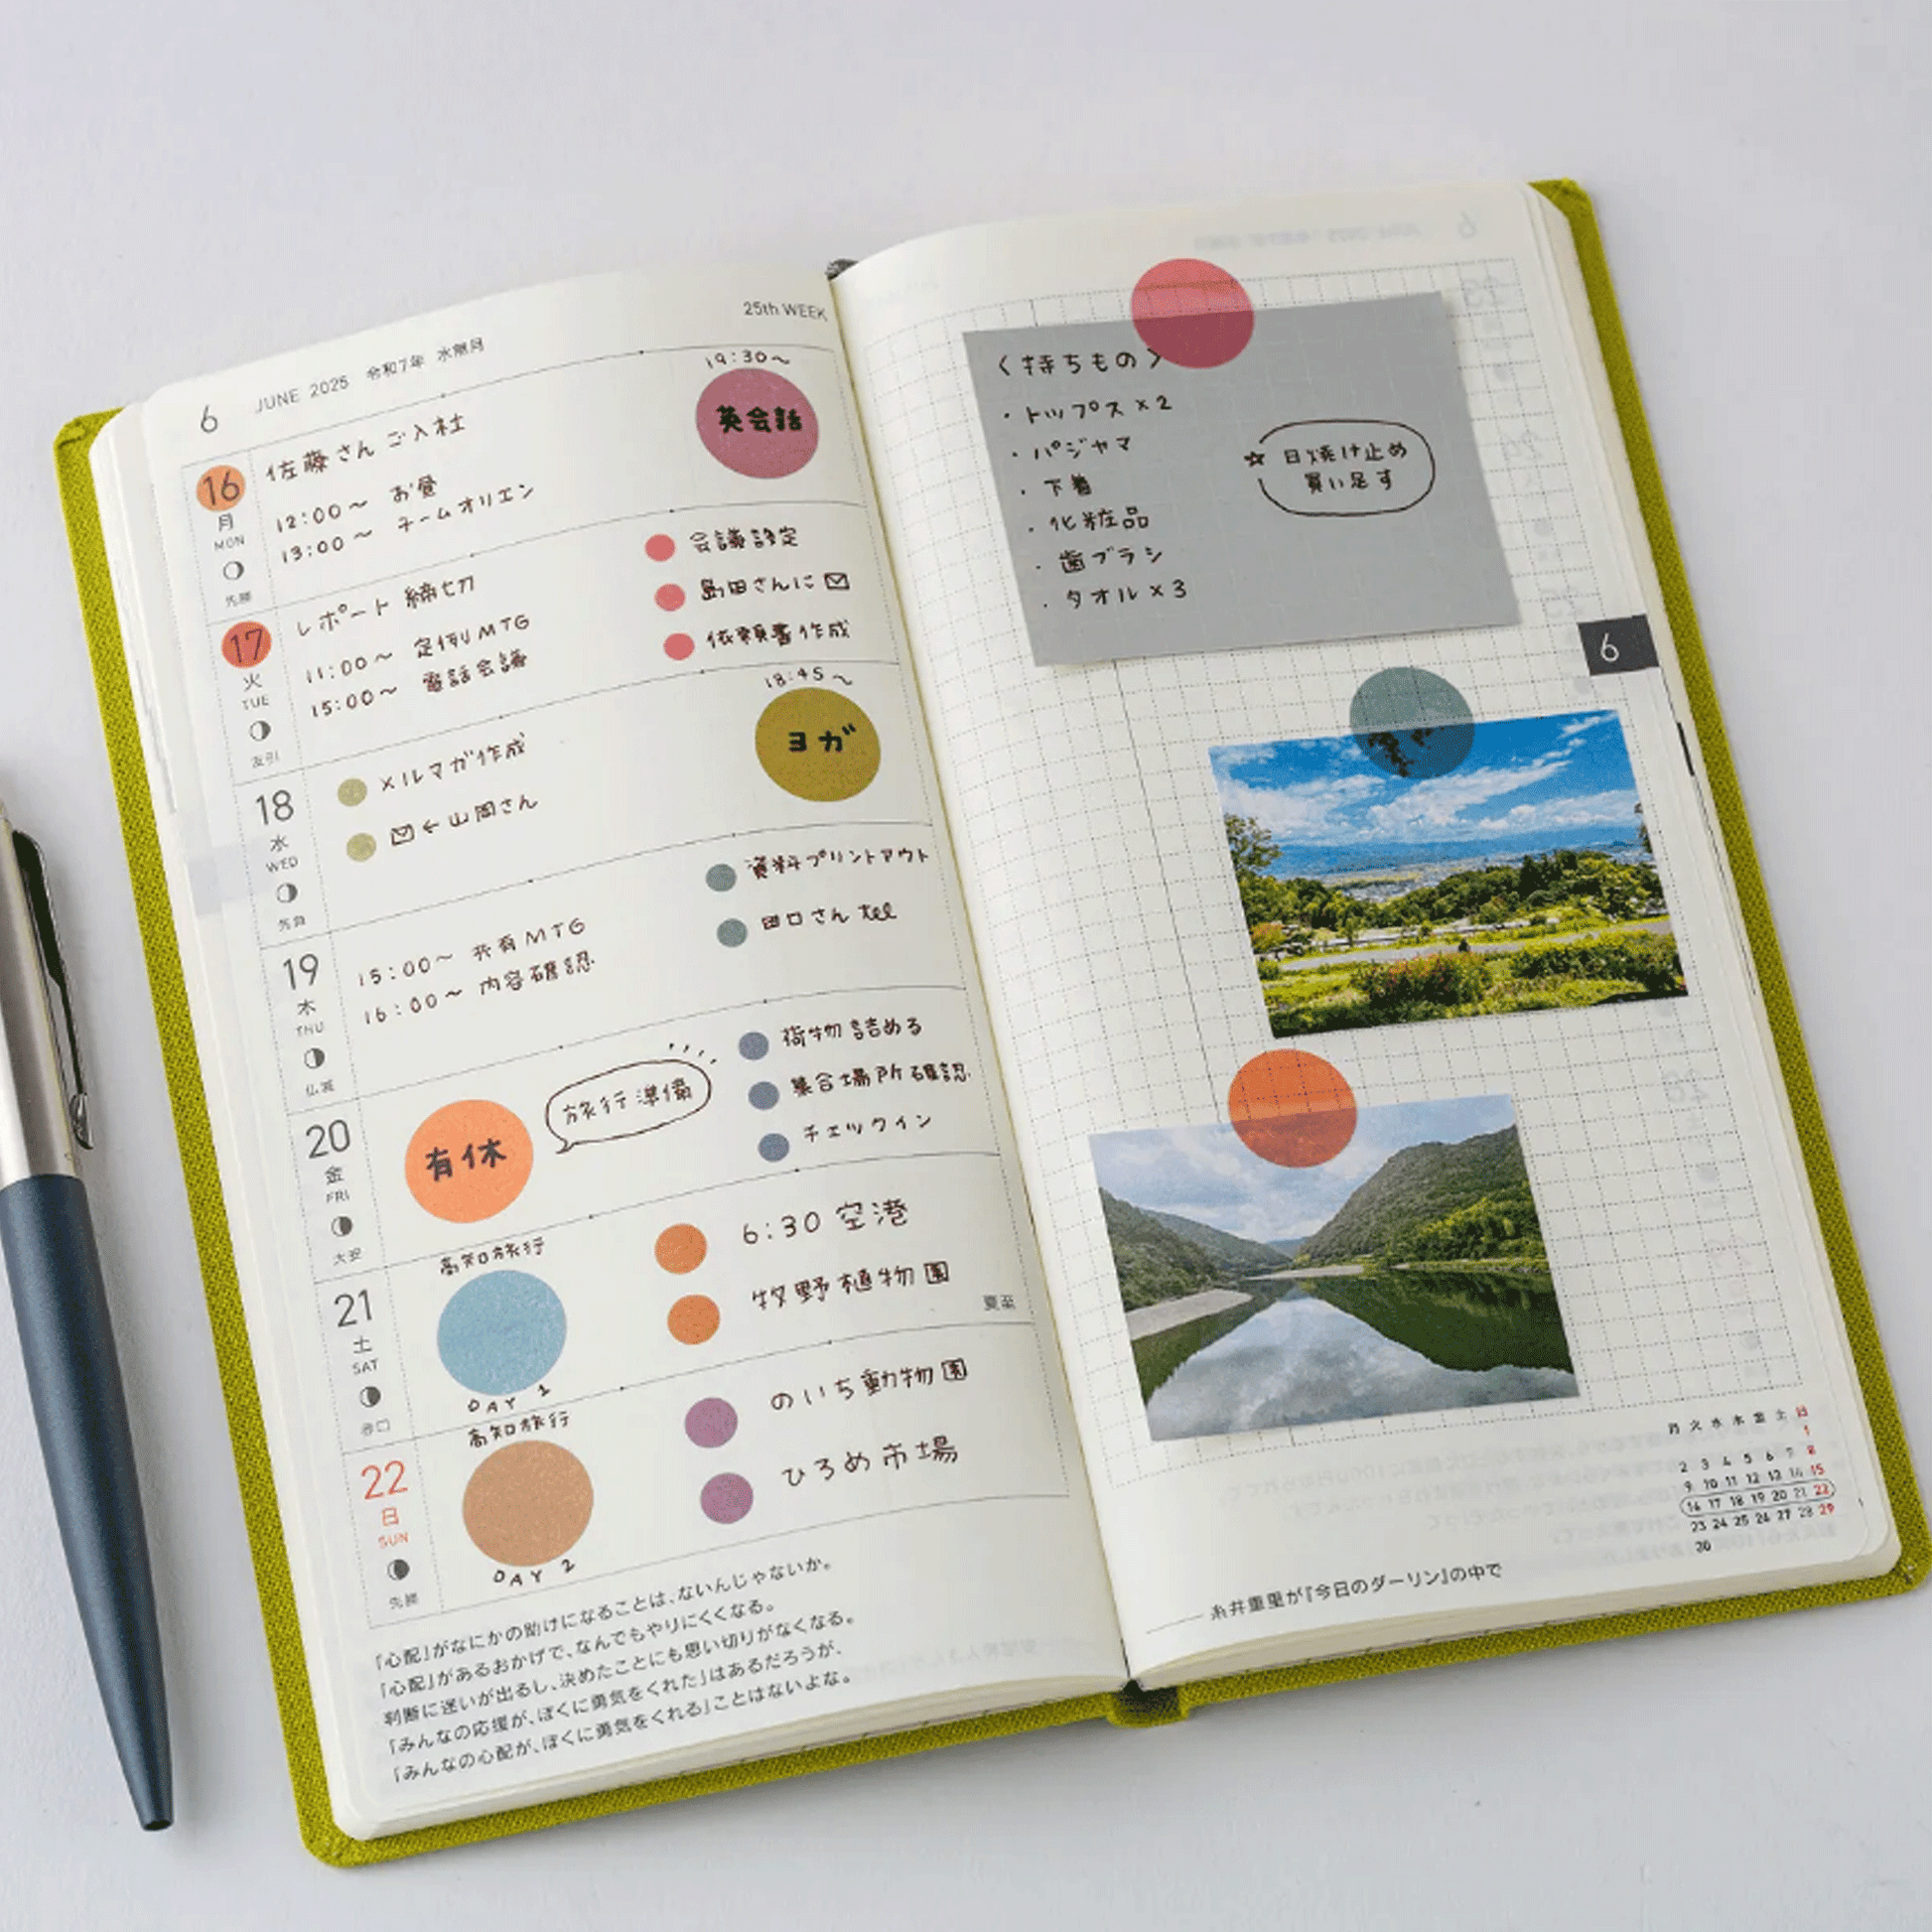 25th WEEK
6 JUNE 2025 令和7年 水無月
16
月
MON
先勝
佐藤さんご入社
12:00〜 お昼
13:00〜 チームオリエン
19:30〜
英会話
17
火
TUE
友引
レポート締切
11:00〜 定例MTG
15:00〜 電話会議
会議設定
島田さんに✉
依頼書作成
18
水
WED
先負
メルマガ作成
✉←山岡さん
18:45〜
ヨガ
19
木
THU
仏滅
15:00〜 共有MTG
16:00〜 内容確認
資料プリントアウト
田口さんtel
20
金
FRI
大安
有休
旅行準備
荷物詰める
集合場所確認
チェックイン
21
土
SAT
赤口
高知旅行
DAY 1
6:30 空港
牧野植物園
夏至
22
日
SUN
先勝
高知旅行
DAY 2
のいち動物園
ひろめ市場
「心配」がなにかの助けになることは、ないんじゃないか。
「心配」があるおかげで、なんでもやりにくくなる。
判断に迷いが出るし、決めたことにも思い切りがなくなる。
「みんなの応援が、ぼくに勇気をくれた」はあるだろうが、
「みんなの心配が、ぼくに勇気をくれる」ことはないよな。
〈持ちもの〉
・トップス×2
・パジャマ
・下着
・化粧品
・歯ブラシ
・タオル×3
☆日焼け止め
買い足す
6
月 火 水 木 金 土 日
1
2 3 4 5 6 7 8
9 10 11 12 13 14 15
16 17 18 19 20 21 22
23 24 25 26 27 28 29
30
――糸井重里が『今日のダーリン』の中で